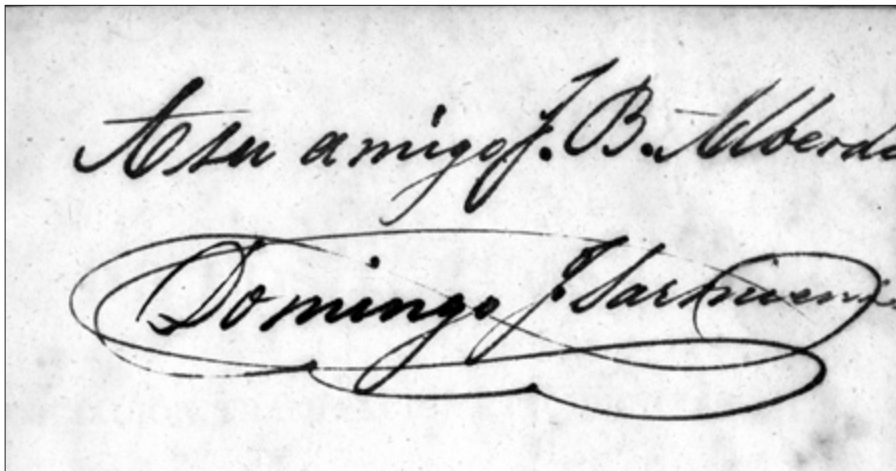 A su amigo J. B. Alberd
Domingo J. Sarmien